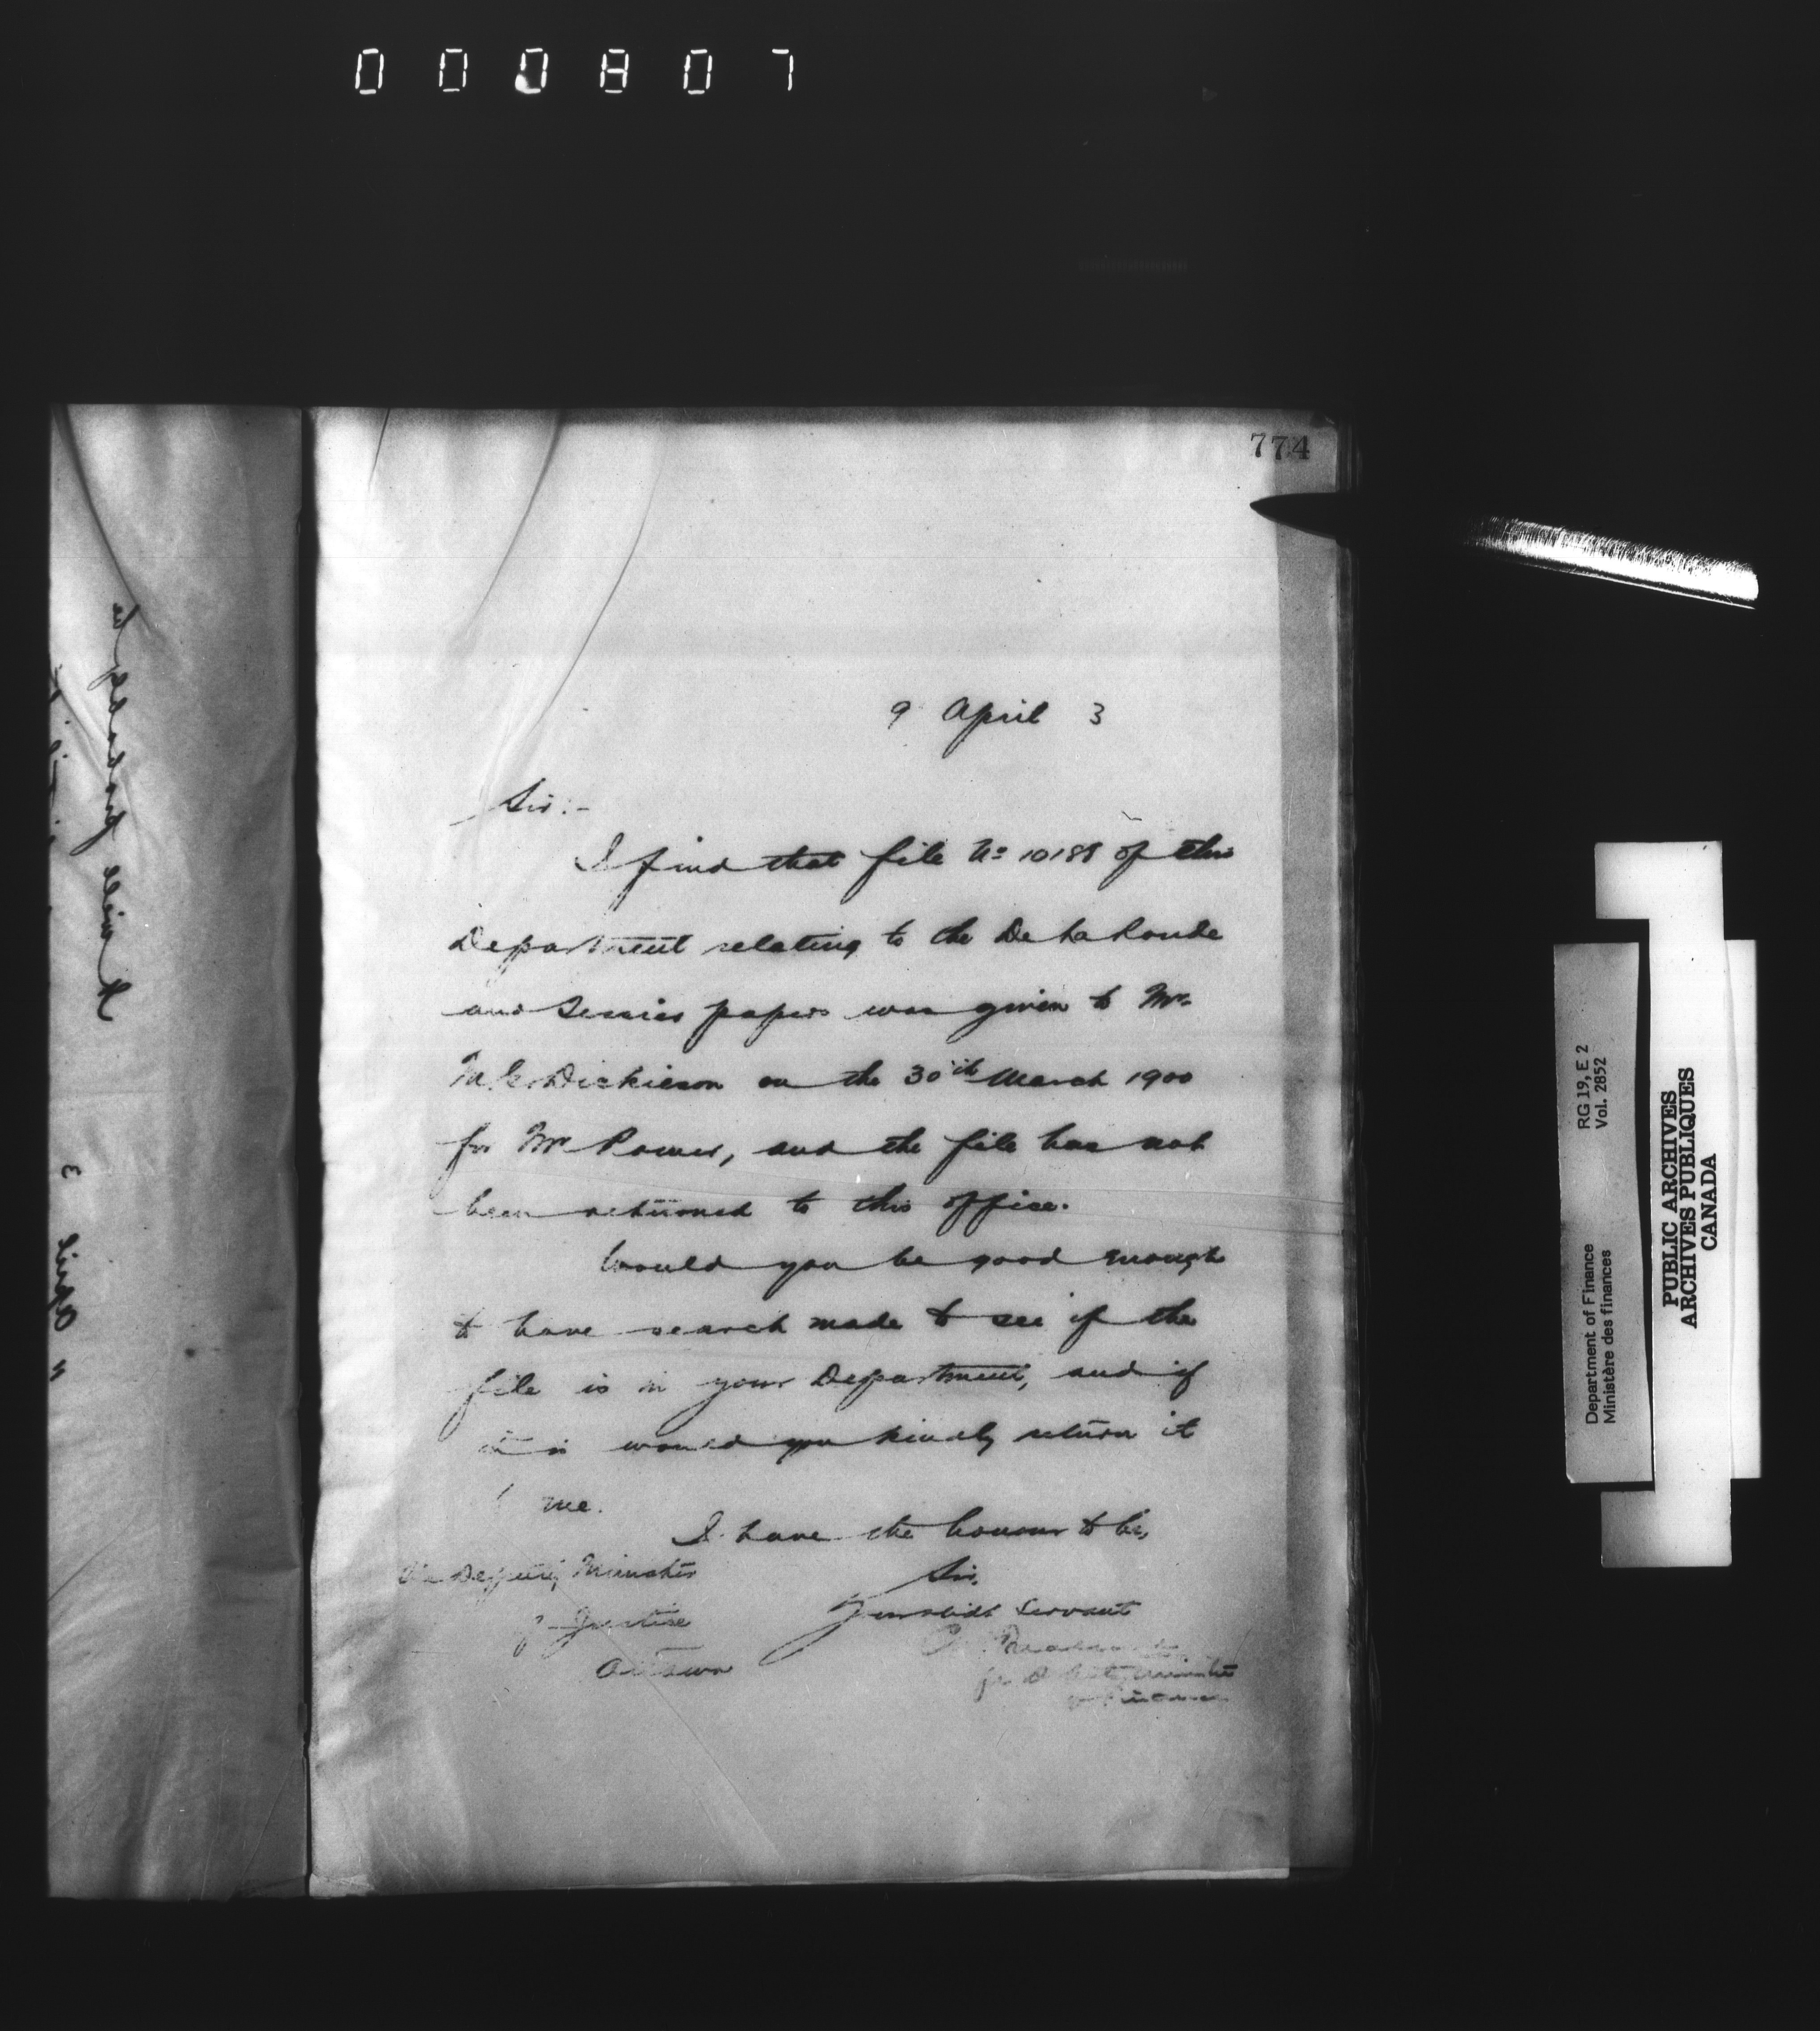 000807
774
9 April 3
Sir:-
I find that file No 10188 of this
Department relating to the De La Ronde
and papers was given to Mr.
Dickieson on the 30th March 1900
for Mr Power, and the file has not
been returned to this office.
Would you be good enough
to have search made to see if the
file is in your Department, and if
it is would you kindly return it
me.
I have the honour to be,
Sir,
Your obdt servant
The Deputy Minister
of Justice
Ottawa
for Deputy Minister
of Finance
Department of Finance RG 19, E 2
Ministère des finances Vol. 2852
PUBLIC ARCHIVES
ARCHIVES PUBLIQUES
CANADA